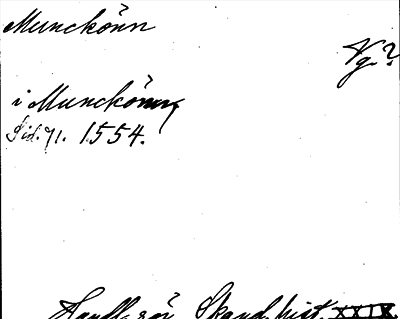 Munckönn
Vg?
i Munckönn
Sid. 71. 1554.
Handl. rör. Skand. hist. XXIX